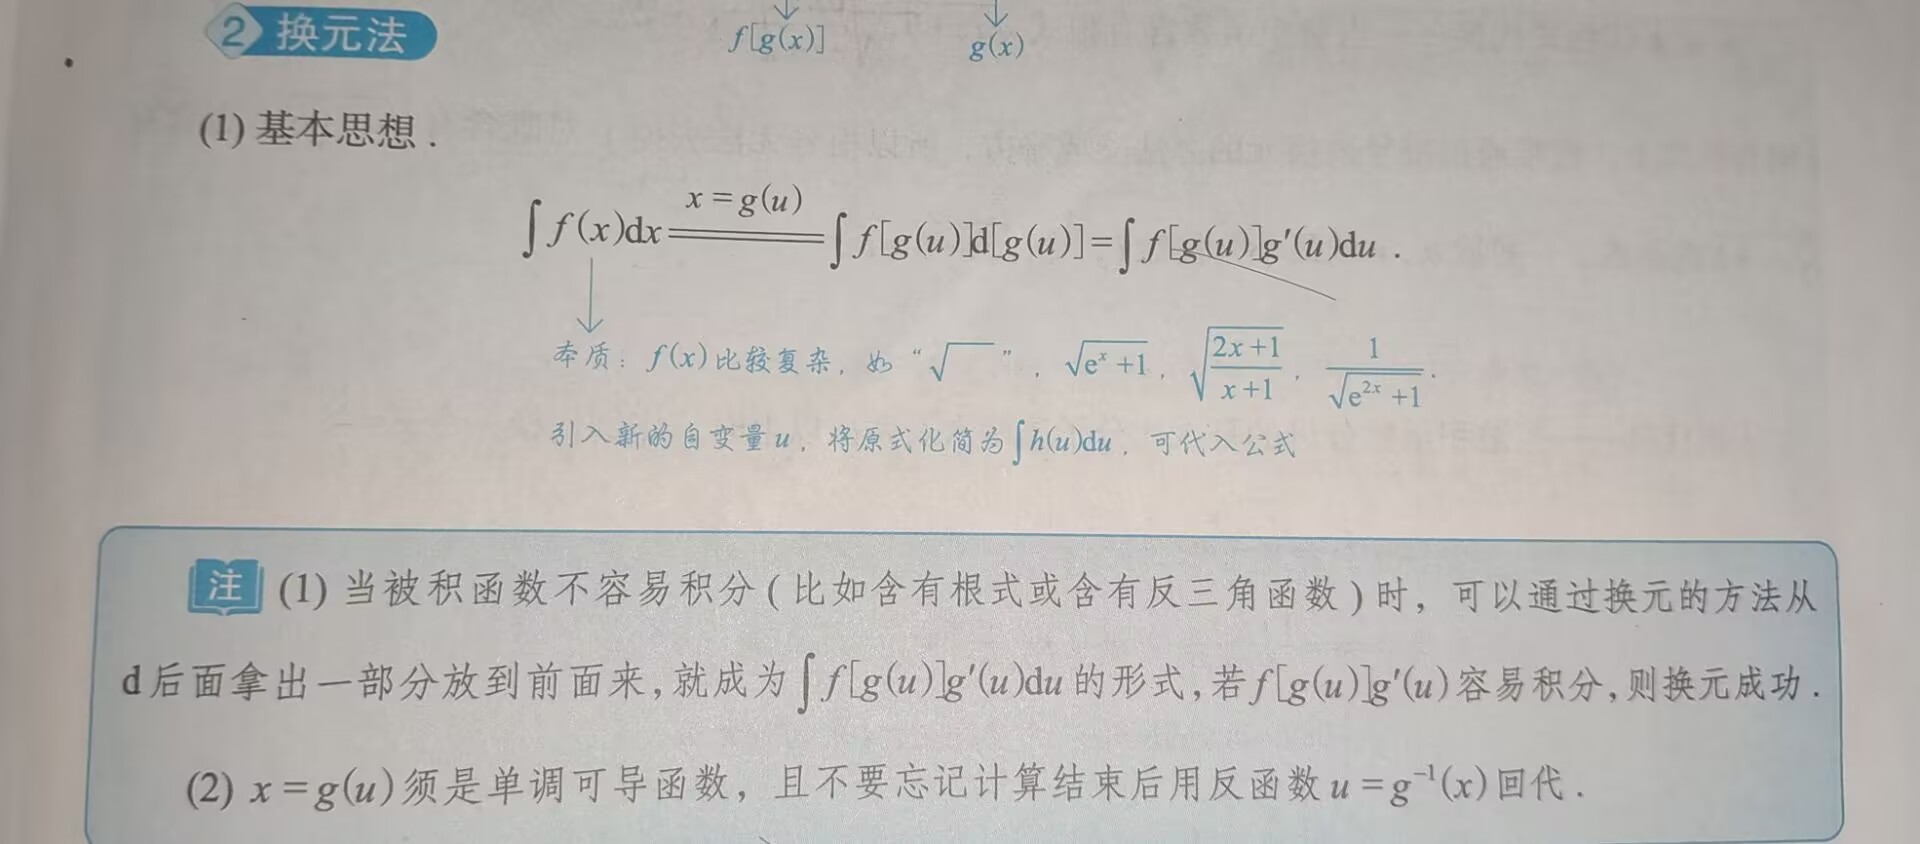 f[g(x)] g(x)
2 换元法
(1) 基本思想.
∫f(x)dx \xlongequal{x=g(u)} ∫f[g(u)]d[g(u)]=∫f[g(u)]g′(u)du.
本质: f(x)比较复杂, 如“√ ”, √(eˣ+1), √((2x+1)/(x+1)), 1/√(e²ˣ+1).
引入新的自变量u, 将原式化简为∫h(u)du, 可代入公式
注 (1) 当被积函数不容易积分(比如含有根式或含有反三角函数)时, 可以通过换元的方法从
d后面拿出一部分放到前面来,就成为∫f[g(u)]g′(u)du的形式,若f[g(u)]g′(u)容易积分,则换元成功.
(2) x=g(u)须是单调可导函数, 且不要忘记计算结束后用反函数u=g⁻¹(x)回代.